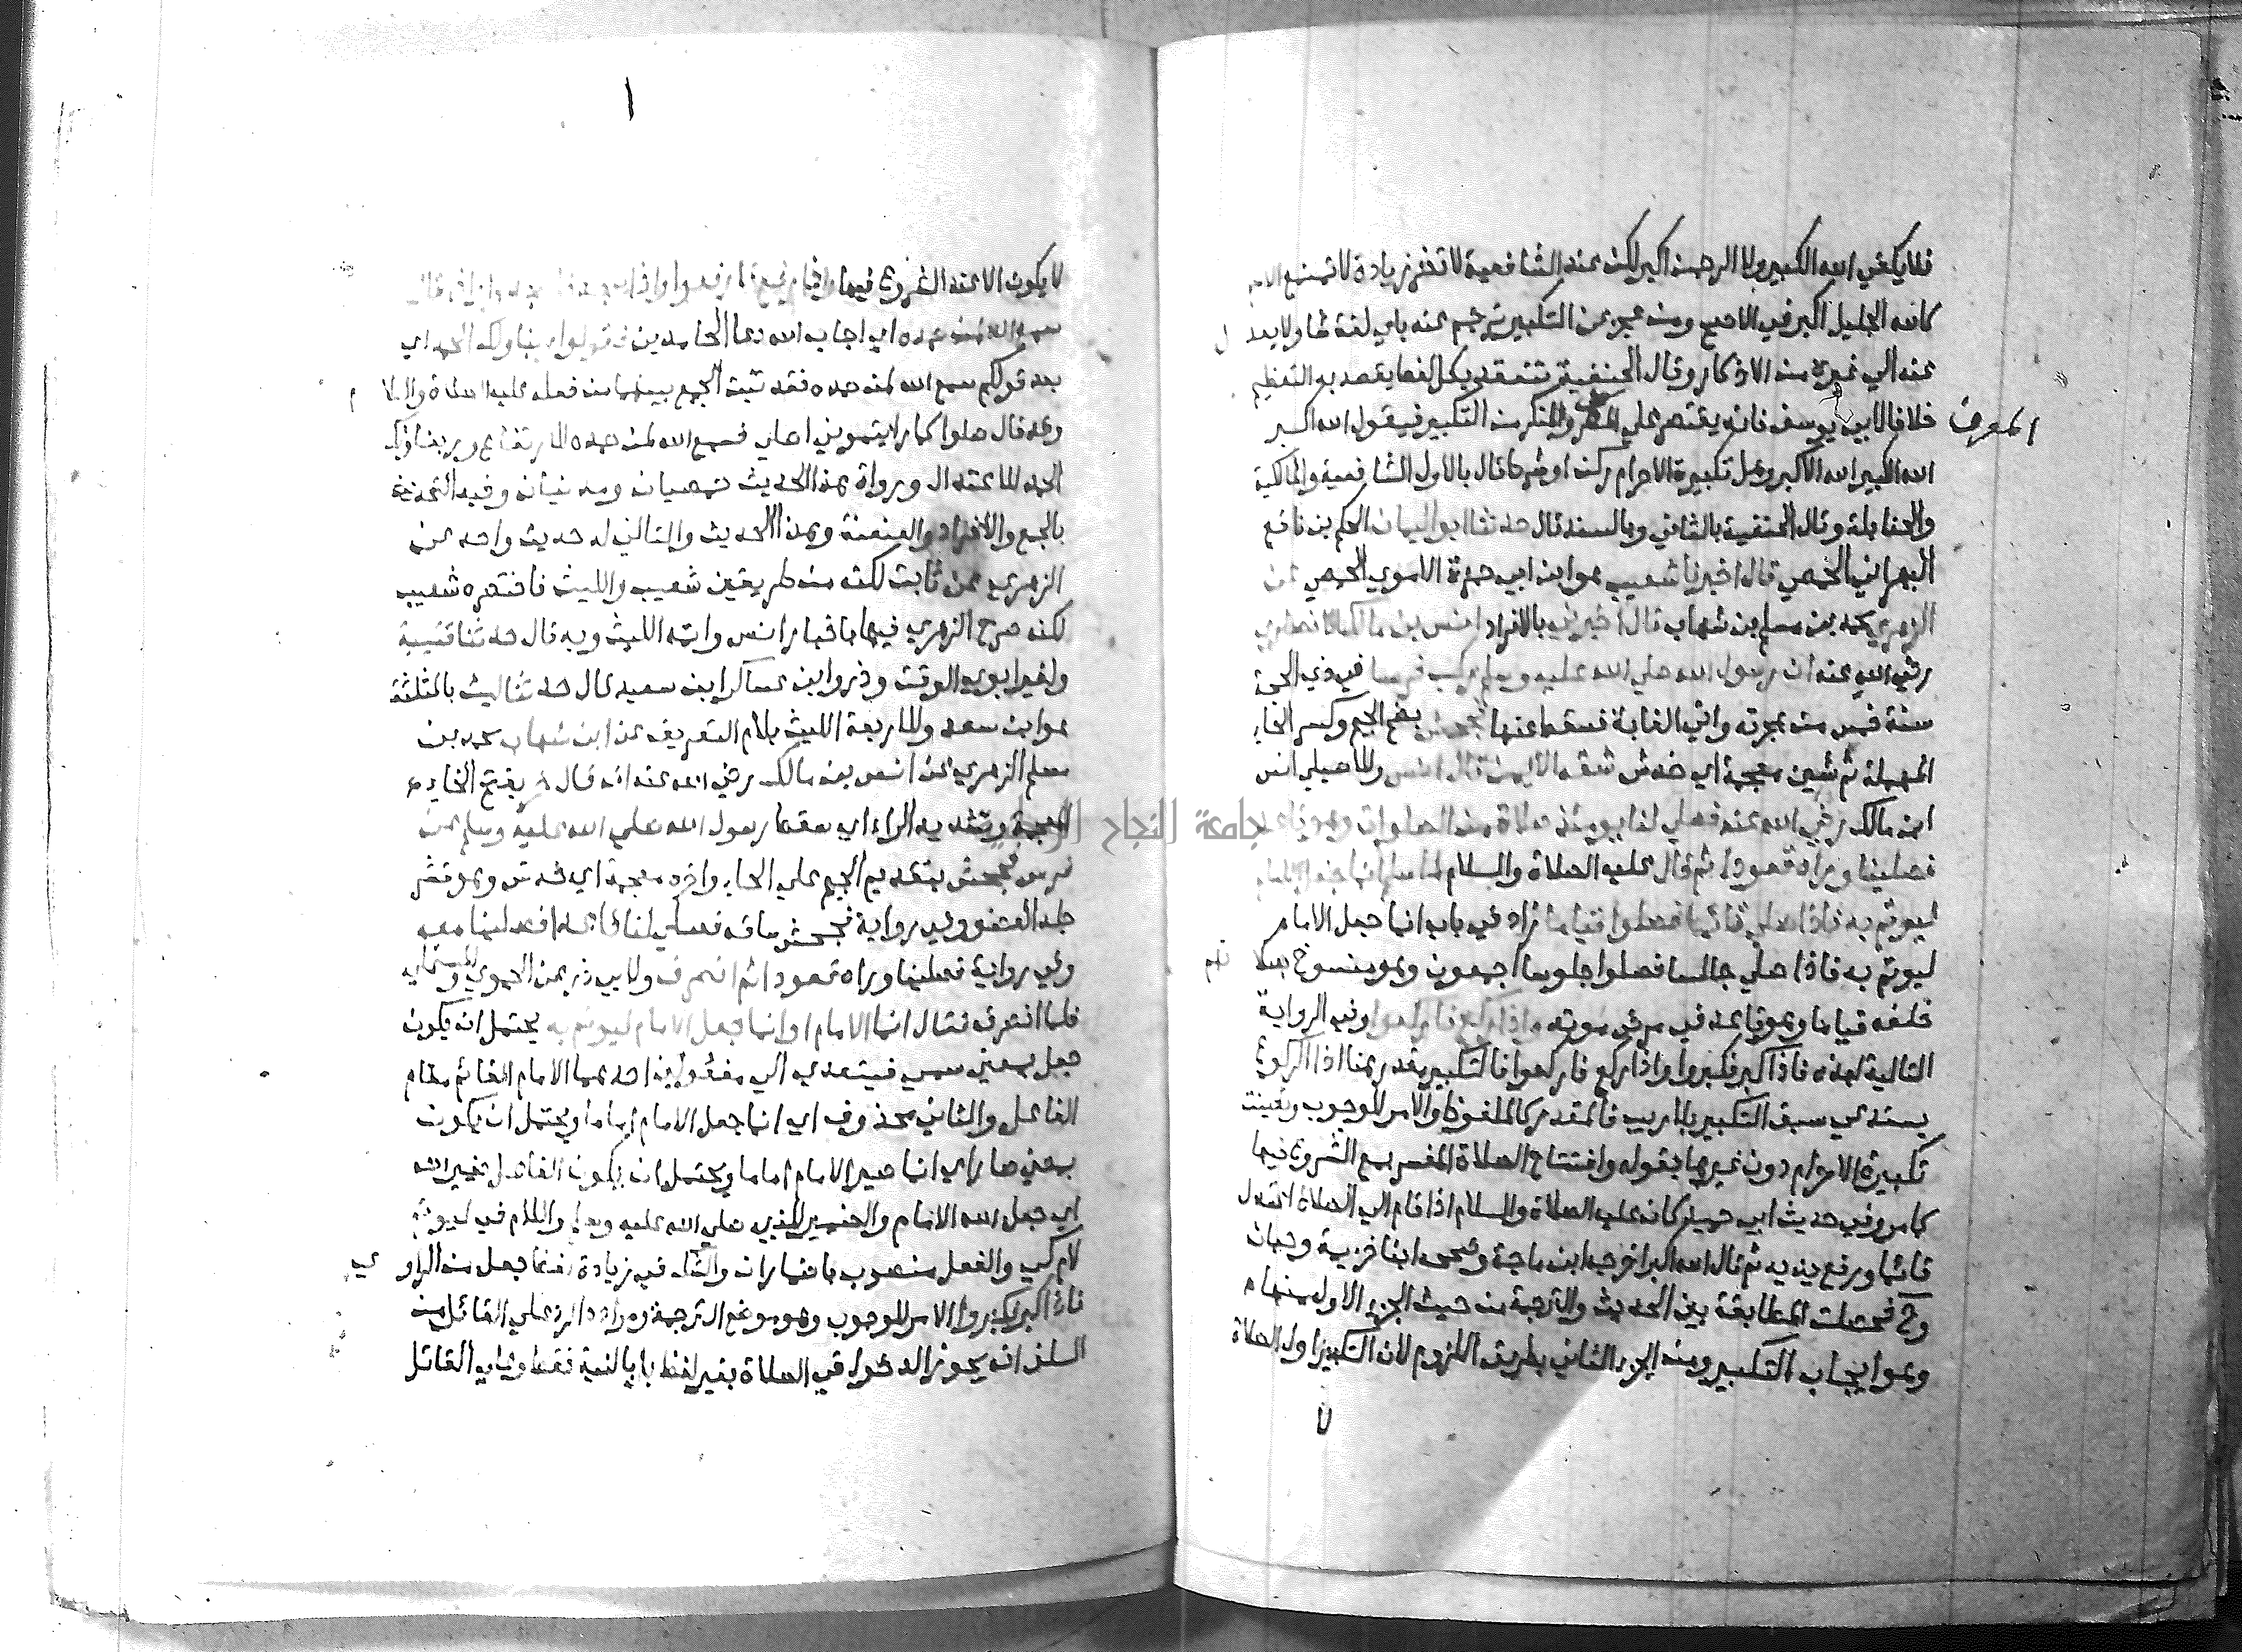 فلا يكفي الله الكبير ولا الرحمن اكبر لكن عند الشافعية لا تضر زيادة لا تمنع الاسم
كالله الجليل اكبر في الاصح ومن عجز عن التكبير ترجم عنه باي لغة شا ولا يعدل
عنه الي غيره من الاذكار وقال الحنفية تنعقد بكل لفظ يقصد به التعظيم
خلافا لابي يوسف فانه يقتصر علي المعرف والمنكر من التكبير فيقول الله اكبر
المعرف
الله الكبير الله الاكبر وهل تكبيرة الاحرام ركن او شرط قال بالاول الشافعية والمالكية
والحنابلة وقال الحنفية بالثاني وبالسند قال حدثنا ابو اليمان الحكم بن نافع
البهراني الحمصي قال اخبرنا شعيب هو ابن ابي حمزة الاموي الحمصي عن
الزهري محمد بن مسلم بن شهاب قال اخبرني بالافراد انس بن مالك الانصاري
رضي الله عنه ان رسول الله صلي الله عليه وسلم ركب فرسا في ذي الحجة
سنة خمس من هجرته واتي الغابة فسقط عنها فجحش بضم الجيم وكسر الحاء
المهملة ثم شين معجمة اي خدش شقه الايمن قال انس وللاصيلي انس
ابن مالك رضي الله عنه فصلي لنا يومئذ صلاة من الصلوات وهو قاعد
فصلينا وراه قعودا ثم قال عليه الصلاة والسلام لما سلم انما جعل الامام
ليوتم به فاذا صلي قائما فصلوا قياما زاد في باب انما جعل الامام
ليوتم به فاذا صلي جالسا فصلوا جلوسا اجمعون وهو منسوخ بصلاتهم
خلفه قياما وهو قاعد في مرض موته واذا ركع فاركعوا وفي الرواية
التالية لهذه فاذا كبر فكبروا واذا ركع فاركعوا فالتكبير يقدر هنا اذ الركوع
يستدعي سبق التكبير بلا ريب فالمقدر كالملفوظ والامر للوجوب وتعينت
تكبيرة الاحرام دون غيرها بقوله وافتتاح الصلاة المفسر بمع الشروع فيها
كما مر وفي حديث ابي حميد كان عليه الصلاة والسلام اذا قام الي الصلاة اعتدل
قائما ورفع يديه ثم قال الله اكبر اخرجه ابن ماجة وصححه ابنا خزيمة وحبان
وح فحصلت المطابقة بين الحديث والترجمة من حيث الجزء الاول منها
وهو ايجاب التكبير ومن الجزء الثاني بطريق اللزوم لان التكبير اول الصلاة
لا يكون الا عند الشروع فيها واذا رفع فارفعوا واذا سجد فاسجدوا واذا قال
سمع الله لمن حمده اي اجاب الله دعا الحامدين فقولوا ربنا ولك الحمد اي
بعد قولكم سمع الله لمن حمده فقد ثبت الجمع بينهما من فعله عليه الصلاة والسلام
وقد قال صلوا كما رايتموني اصلي فسمع الله لمن حمده للارتفاع وربنا ولك
الحمد للاعتدال ورواة هذا الحديث حمصيان ومدنيان وفيه التحديث
بالجمع والافراد والعنعنة وهذا الحديث والتالي له حديث واحد عن
الزهري عن ثابت لكنه من طريقين شعيب والليث فاختصره شعيب
لكنه صرح الزهري فيها باخبار انس واتمه الليث وبه قال حدثنا قتيبة
ولغير ابوي الوقت وذر وابن عساكر ابن سعيد قال حدثنا ليث بالمثلثة
هو ابن سعد وللاربعة الليث بلام التعريف عن ابن شهاب محمد بن
مسلم الزهري عن انس بن مالك رضي الله عنه انه قال خر بفتح الخاء
المعجمة وتشديد الراء اي سقط رسول الله صلي الله عليه وسلم عن
فرس فجحش بتقديم الجيم علي الحاء واخره معجمة اي خدش وهو قشر
جلد العضو وفي رواية فجحش ساقه فصلي لنا قاعدا فصلينا معه
وفي رواية فصلينا وراه قعودا ثم انصرف ولابي ذر عن الحموي والمستملي
فلما انصرف فقال انما الامام او انما جعل الامام ليوتم به يحتمل ان يكون
جعل بمعني سمي فيتعدي الي مفعولين احدهما الامام القائم مقام
الفاعل والثاني محذوف اي انما جعل الامام اماما ويحتمل ان يكون
بمعني صار اي انما صير الامام اماما ويحتمل ان يكون الفاعل ضمير الله
اي جعل الله الامام والضمير للنبي صلي الله عليه وسلم واللام في ليوتم
لام كي والفعل منصوب باضمار ان والفاء في زيادة انما جعل من الراوي
فاذا كبر فكبروا الامر للوجوب وهو موضع الترجمة ومراده الرد علي القائل من
السلف انه يجوز الدخول في الصلاة بغير لفظ بل بالنية فقط وعلي القائل
جامعة النجاح الوطنية